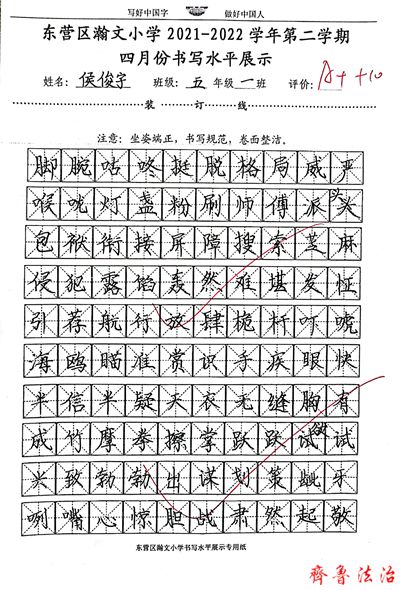 写好中国字 做好中国人
东营区瀚文小学 2021-2022 学年第二学期
四月份书写水平展示
姓名：侯俊宇 班级：五 年级 一 班 评价：A+ +10
装 订 线
注意：坐姿端正，书写规范，卷面整洁。
脚腕咕咚挺脱格局威严
喉咙灯盏粉刷师傅派头
包袱衔接屏障搜索芝麻
侵犯露馅轰然难堪发怔
引荐航行放肆桅杆吓唬
海鸥瞄准赏识手疾眼快
半信半疑天衣无缝胸有
成竹摩拳擦掌跃跃欲试
兴致勃勃出谋划策龇牙
咧嘴心惊胆战肃然起敬
东营区瀚文小学书写水平展示专用纸
齐鲁法治